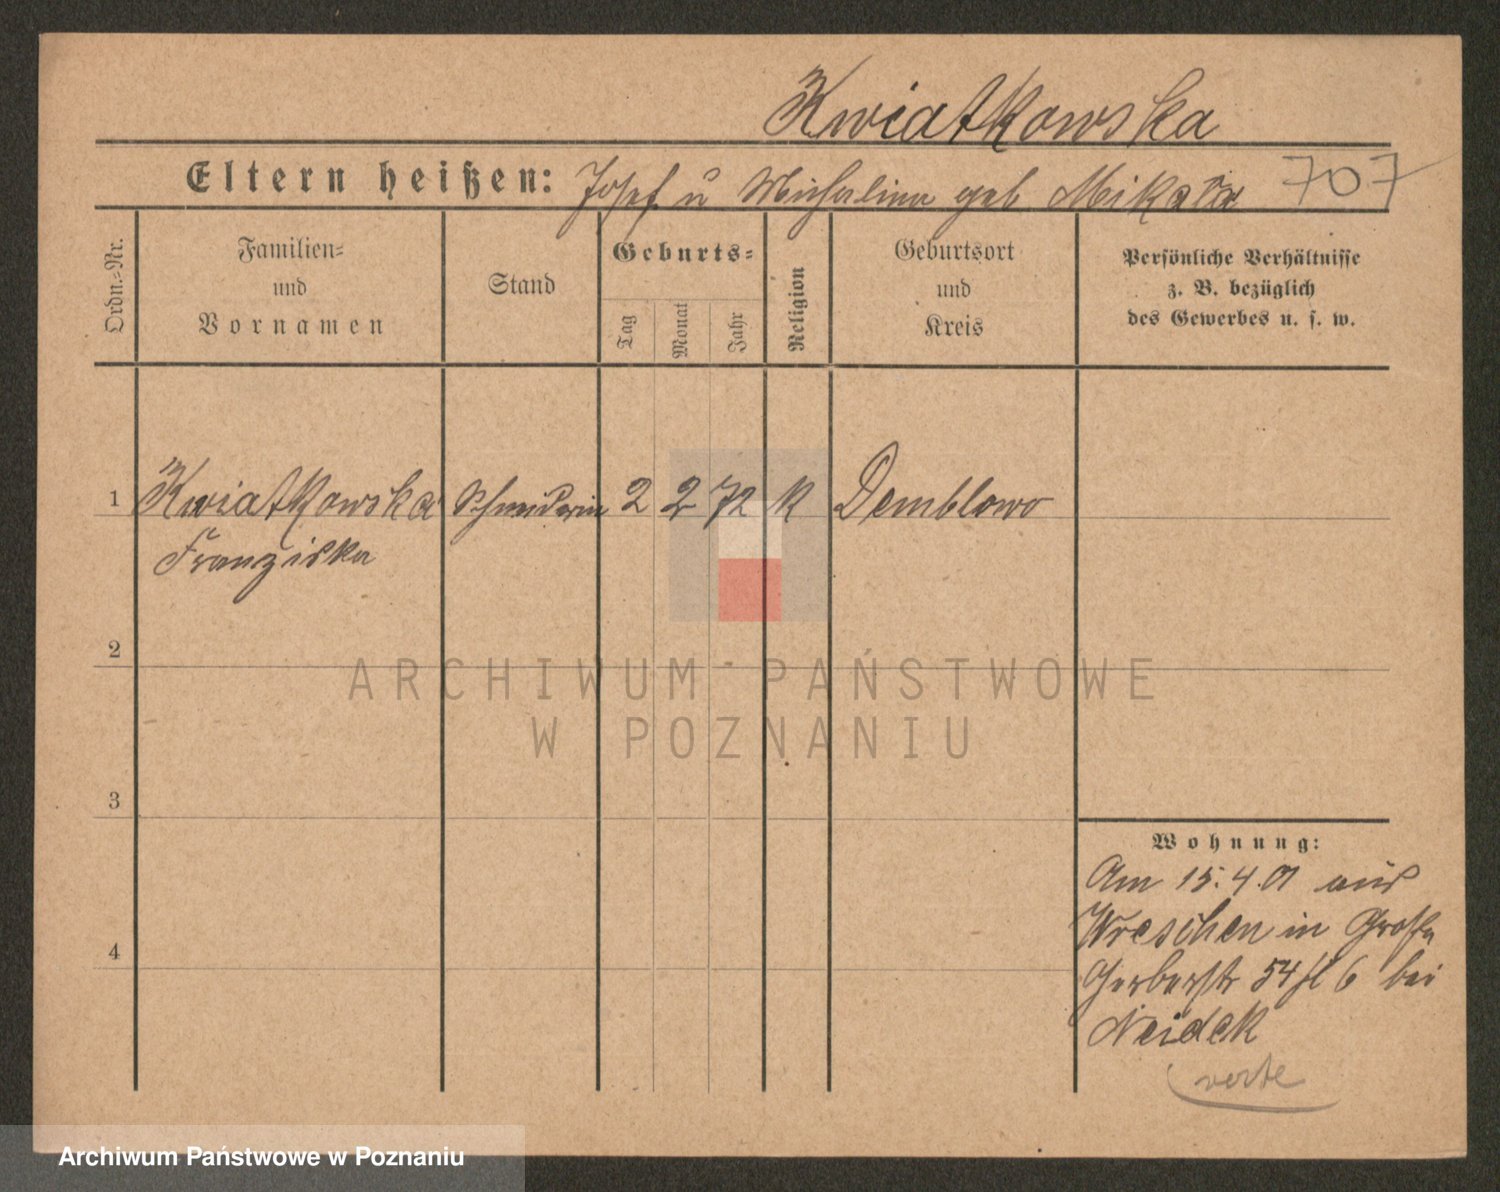 Kwiatkowska
Eltern heißen: Josef u Michalina geb 707
Ordn.=Nr.
Familien=
und
Vornamen
Stand
Geburts=
Tag
Monat
Jahr
Religion
Geburtsort
und
Kreis
Persönliche Verhältnisse
z. B. bezüglich
des Gewerbes u. s. w.
1 Kwiatkowska Schneiderin 2 2 72 K Demblowo
Franziska
2
ARCHIWUM PAŃSTWOWE
W POZNANIU
3
Wohnung:
Am 15.4.01 aus
Wreschen in Große
4
Gerberstr 54 bei
Neidek
verte
Archiwum Państwowe w Poznaniu